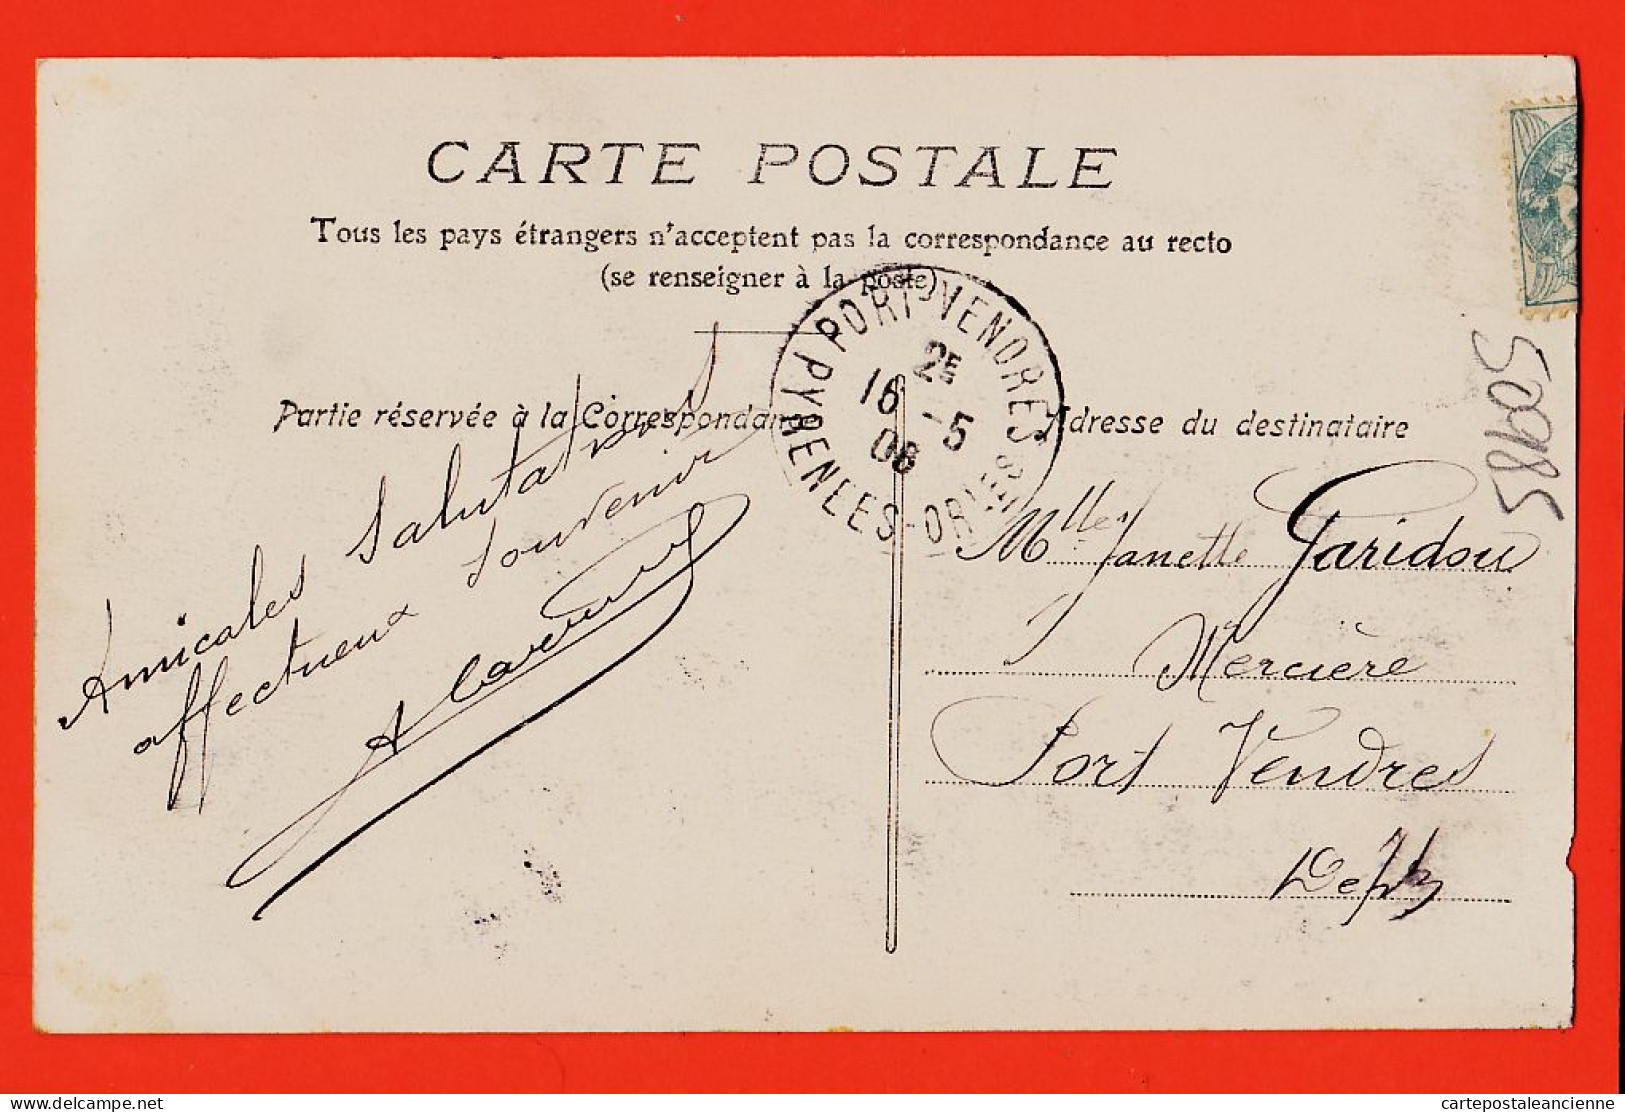 CARTE POSTALE
Tous les pays étrangers n'acceptent pas la correspondance au recto
(se renseigner à la poste)
PORT-VENDRES
PYRENEES-ORLES
2E
16 -5
06
Partie réservée à la Correspondance
Adresse du destinataire
Amicales Salutations
affectueux souvenir
Mlle Janette Garidou
Mercière
Port Vendres
50985
cartepostale-ancienne
cartepostaleancienne.com